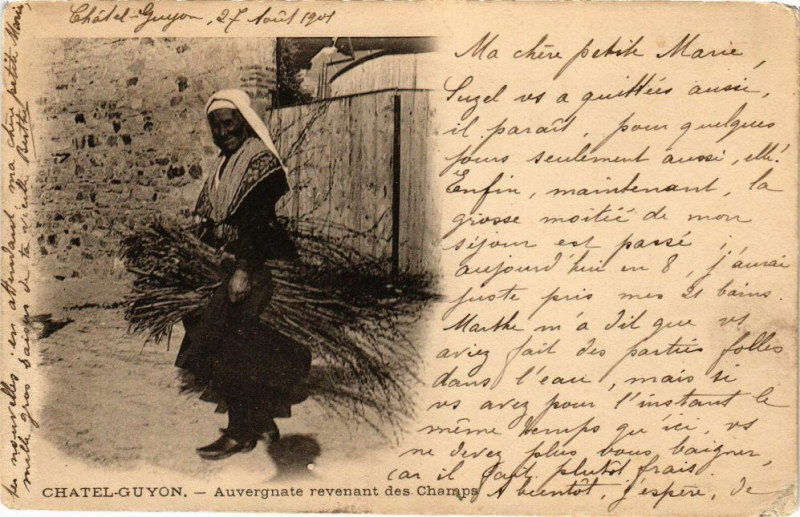 Châtel-Guyon, 27 Août 1901
Ma chère petite Marie,
Suzel vs a quittées aussi,
il paraît, pour quelques
jours seulement aussi, elle!
Enfin, maintenant, la
grosse moitié de mon
séjour est passé;
aujourd'hui en 8, j'aurai
juste pris mes 21 bains.
Marthe m'a dit que vs
aviez fait des parties folles
dans l'eau, mais si
vs avez pour l'instant le
même temps qu'ici, vs
ne devez plus vous baigner,
car il fait plutôt frais.
A bientôt, j'espère, de
tes nouvelles; en attendant, ma chère petite Marie,
mille gros baisers de ta vieille Berthe
CHATEL-GUYON. — Auvergnate revenant des Champs